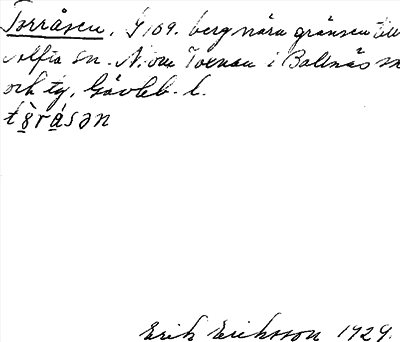 Torråsen, G 109. berg nära gränsen till
Alfta sn. N. om Toenan i Bollnäs sn
och tg, Gävleb. l.
tọ̀rásən
Erik Eriksson 1929.